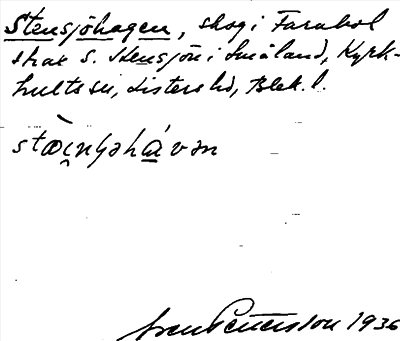 Stensjöhagen, skog i Farabol
strax s. Stensjön i Småland, Kyrk-
hults sn, Listers hd, Blek. l.
Sven Petersson 1936